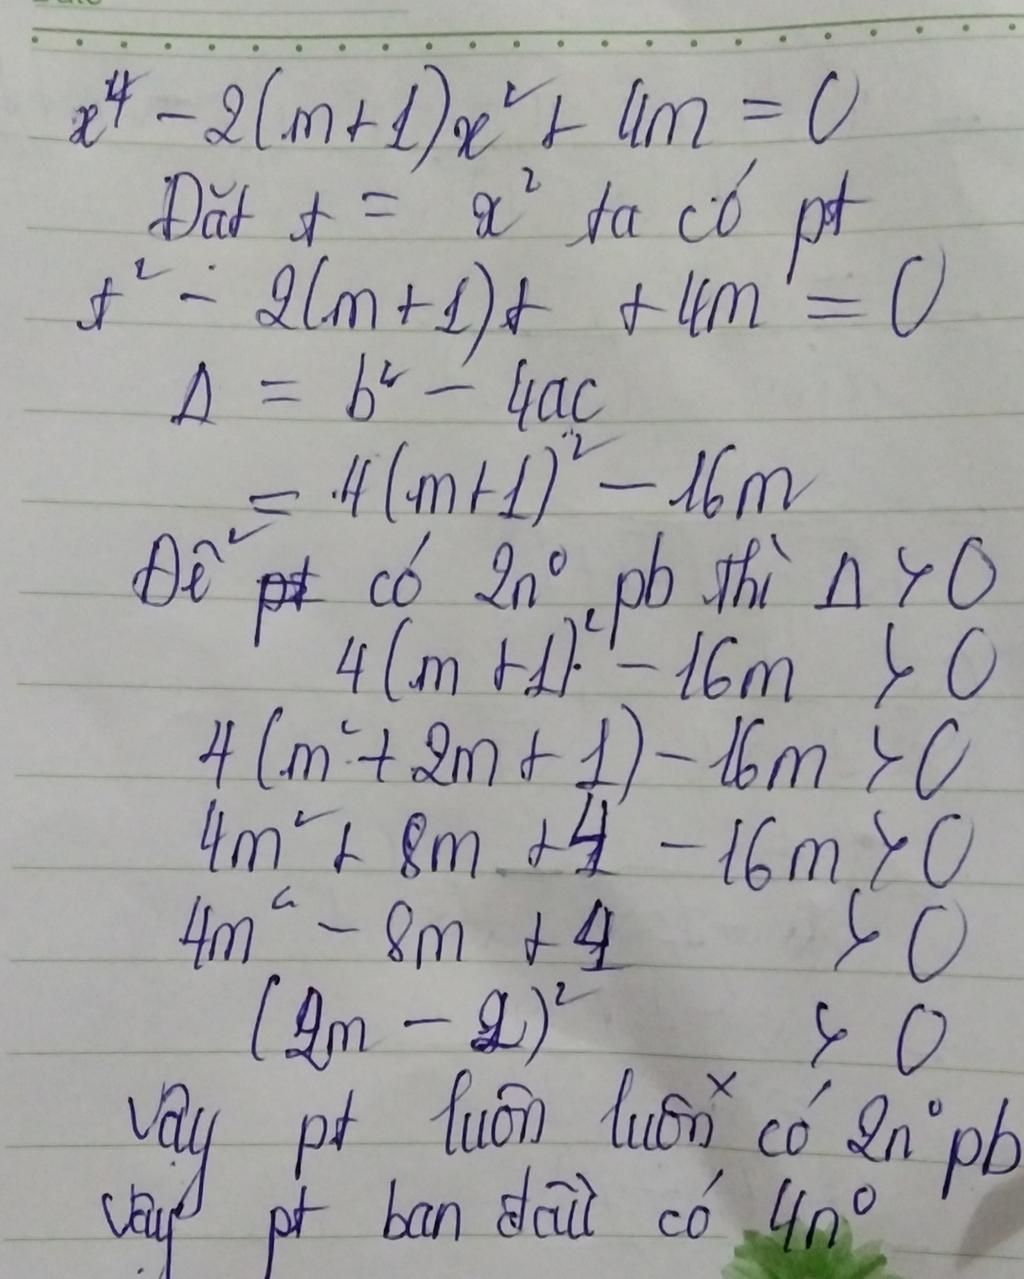 x⁴ - 2(m+1)x² + 4m = 0
Đặt t = x² ta có pt
t² - 2(m+1)t + 4m = 0
Δ = b² - 4ac
= 4(m+1)² - 16m
Để pt có 2n⁰ pb thì Δ > 0
4(m+1)² - 16m > 0
4(m² + 2m + 1) - 16m > 0
4m² + 8m + 4 - 16m > 0
4m² - 8m + 4 > 0
(2m - 2)² > 0
Vậy pt luôn luôn có 2n⁰ pb
Vậy pt ban đầu có 4n⁰